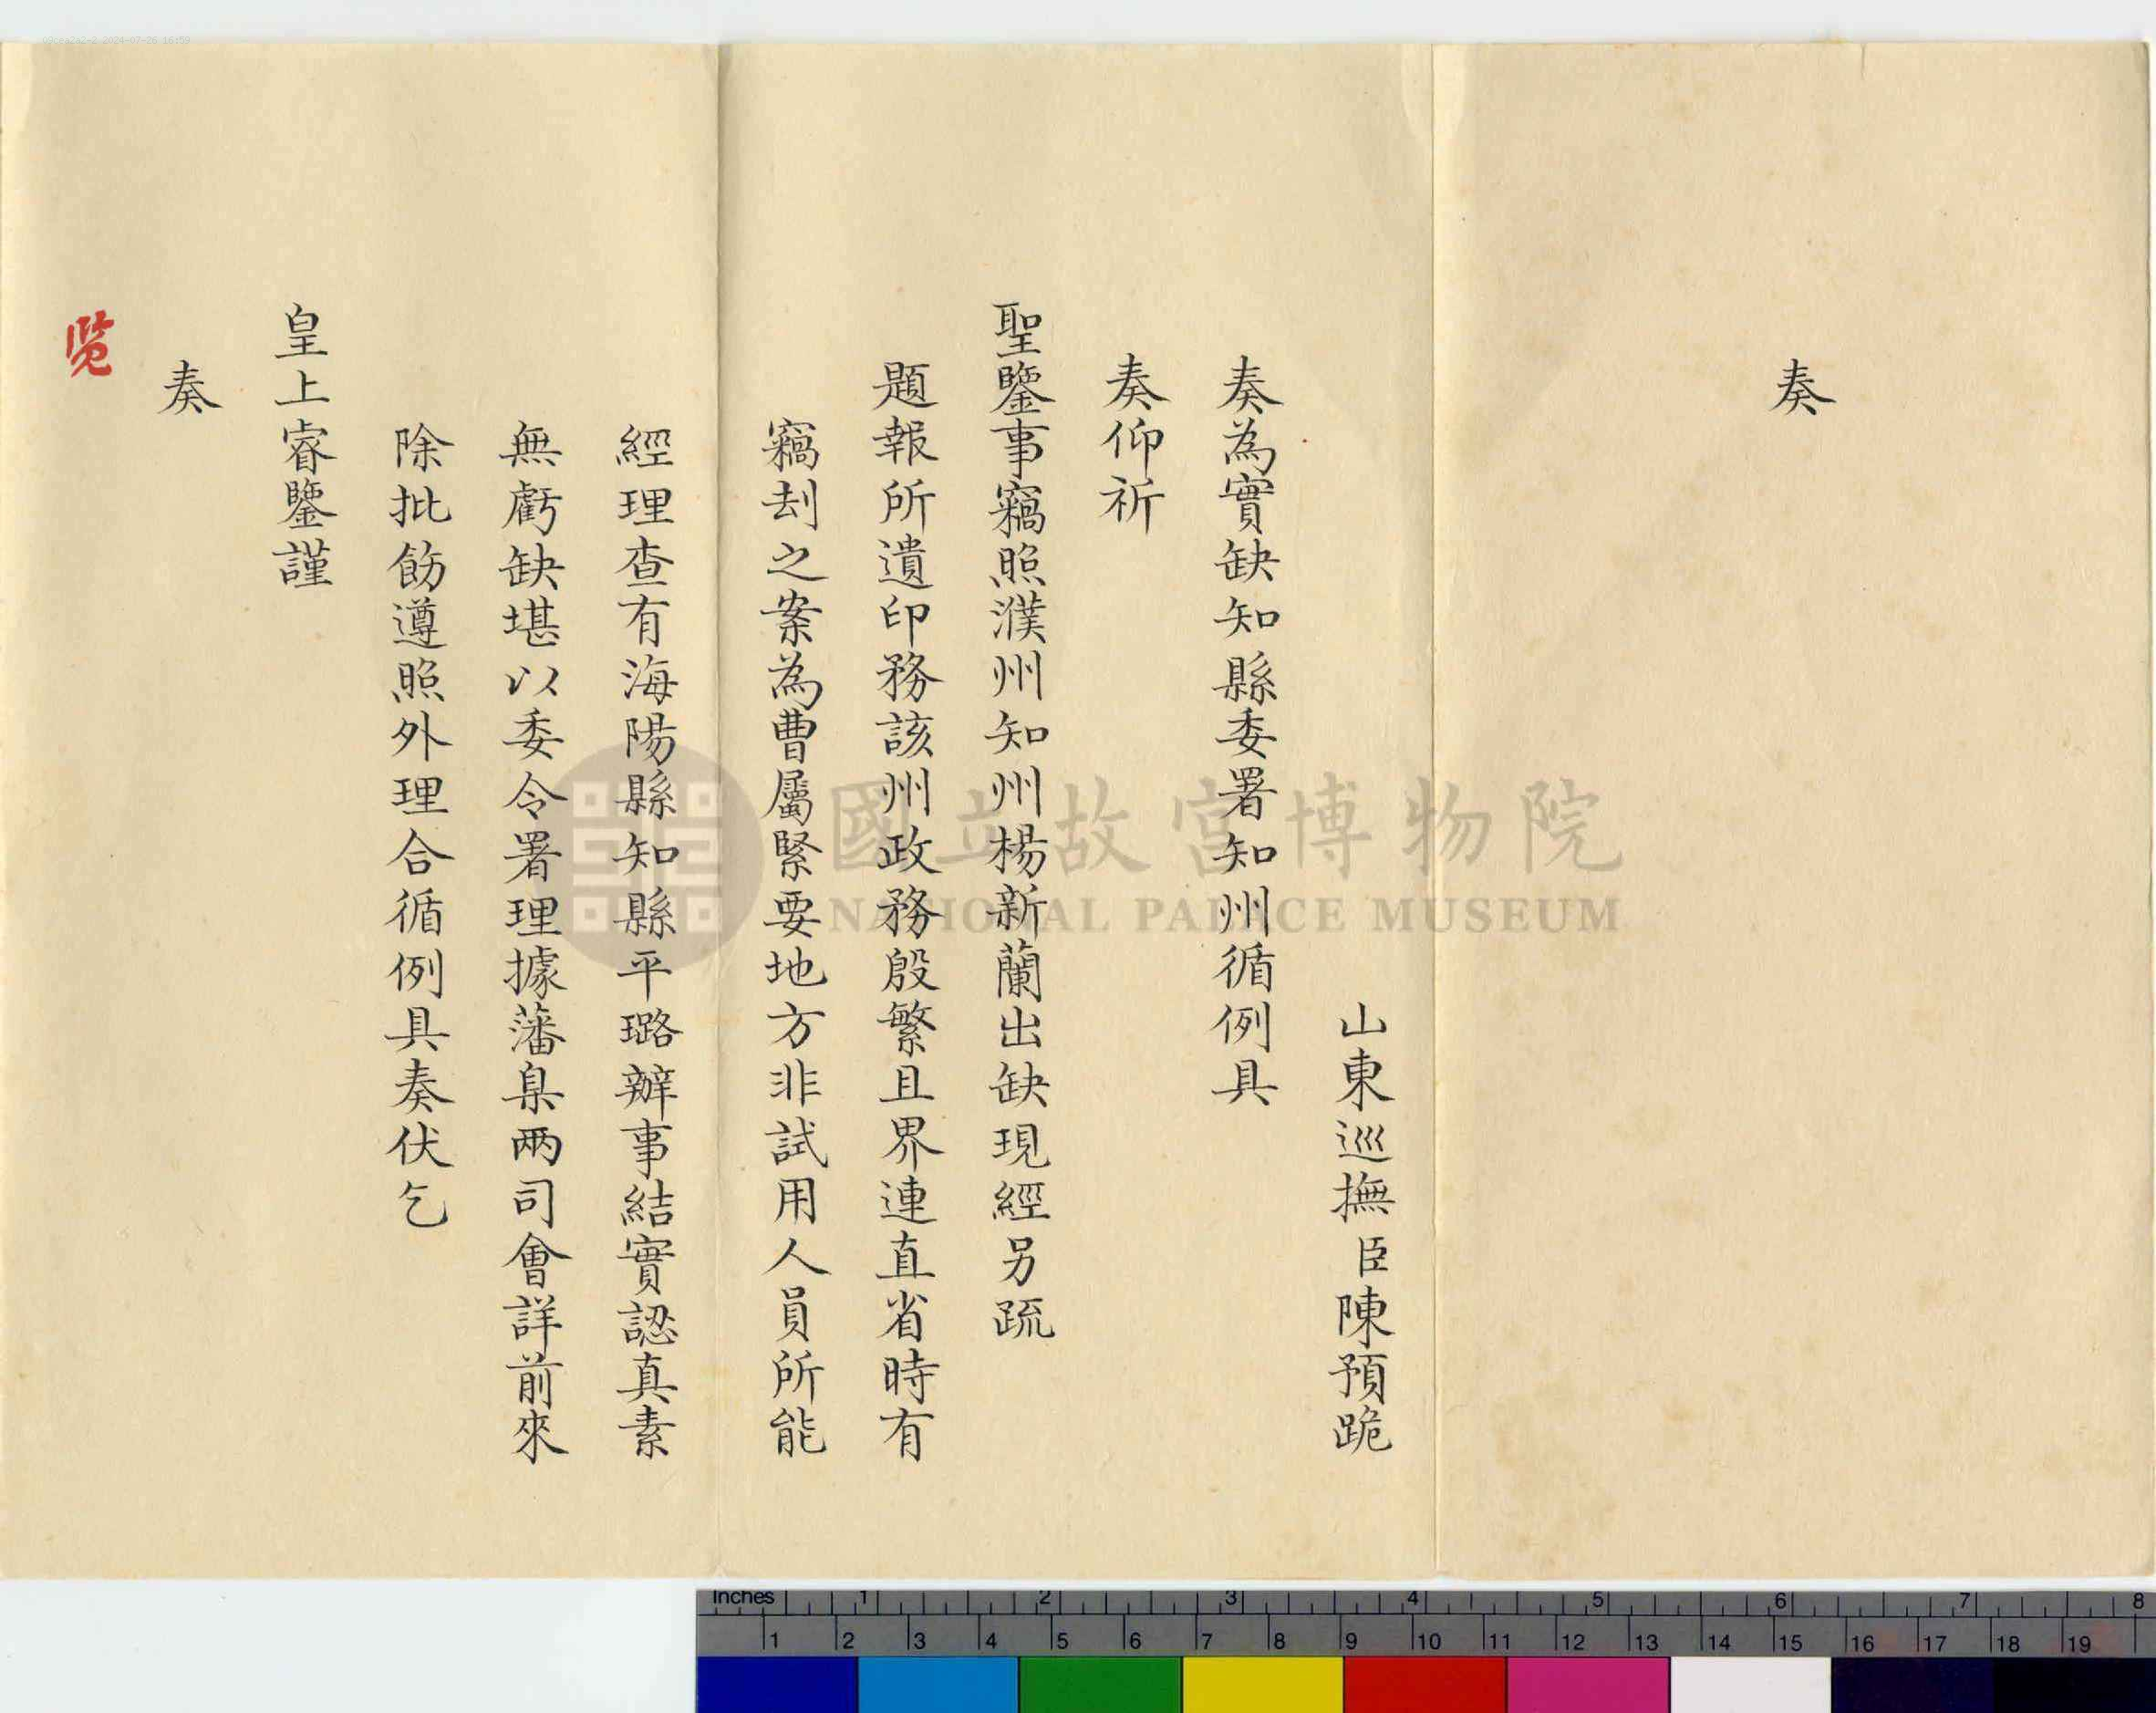 奏
山東巡撫臣陳預跪
奏為實缺知縣委署知州循例具
奏仰祈
聖鑒事竊照濮州知州楊新蘭出缺現經另疏
題報所遺印務該州政務殷繁且界連直省時有
竊刦之案為曹屬緊要地方非試用人員所能
經理查有海陽縣知縣平璐辦事結實認真素
無虧缺堪以委令署理據藩臬兩司會詳前來
除批飭遵照外理合循例具奏伏乞
皇上睿鑒謹
奏
覽
國立故宮博物院
NATIONAL PALACE MUSEUM
Inches 1 2 3 4 5 6 7 8
1 2 3 4 5 6 7 8 9 10 11 12 13 14 15 16 17 18 19